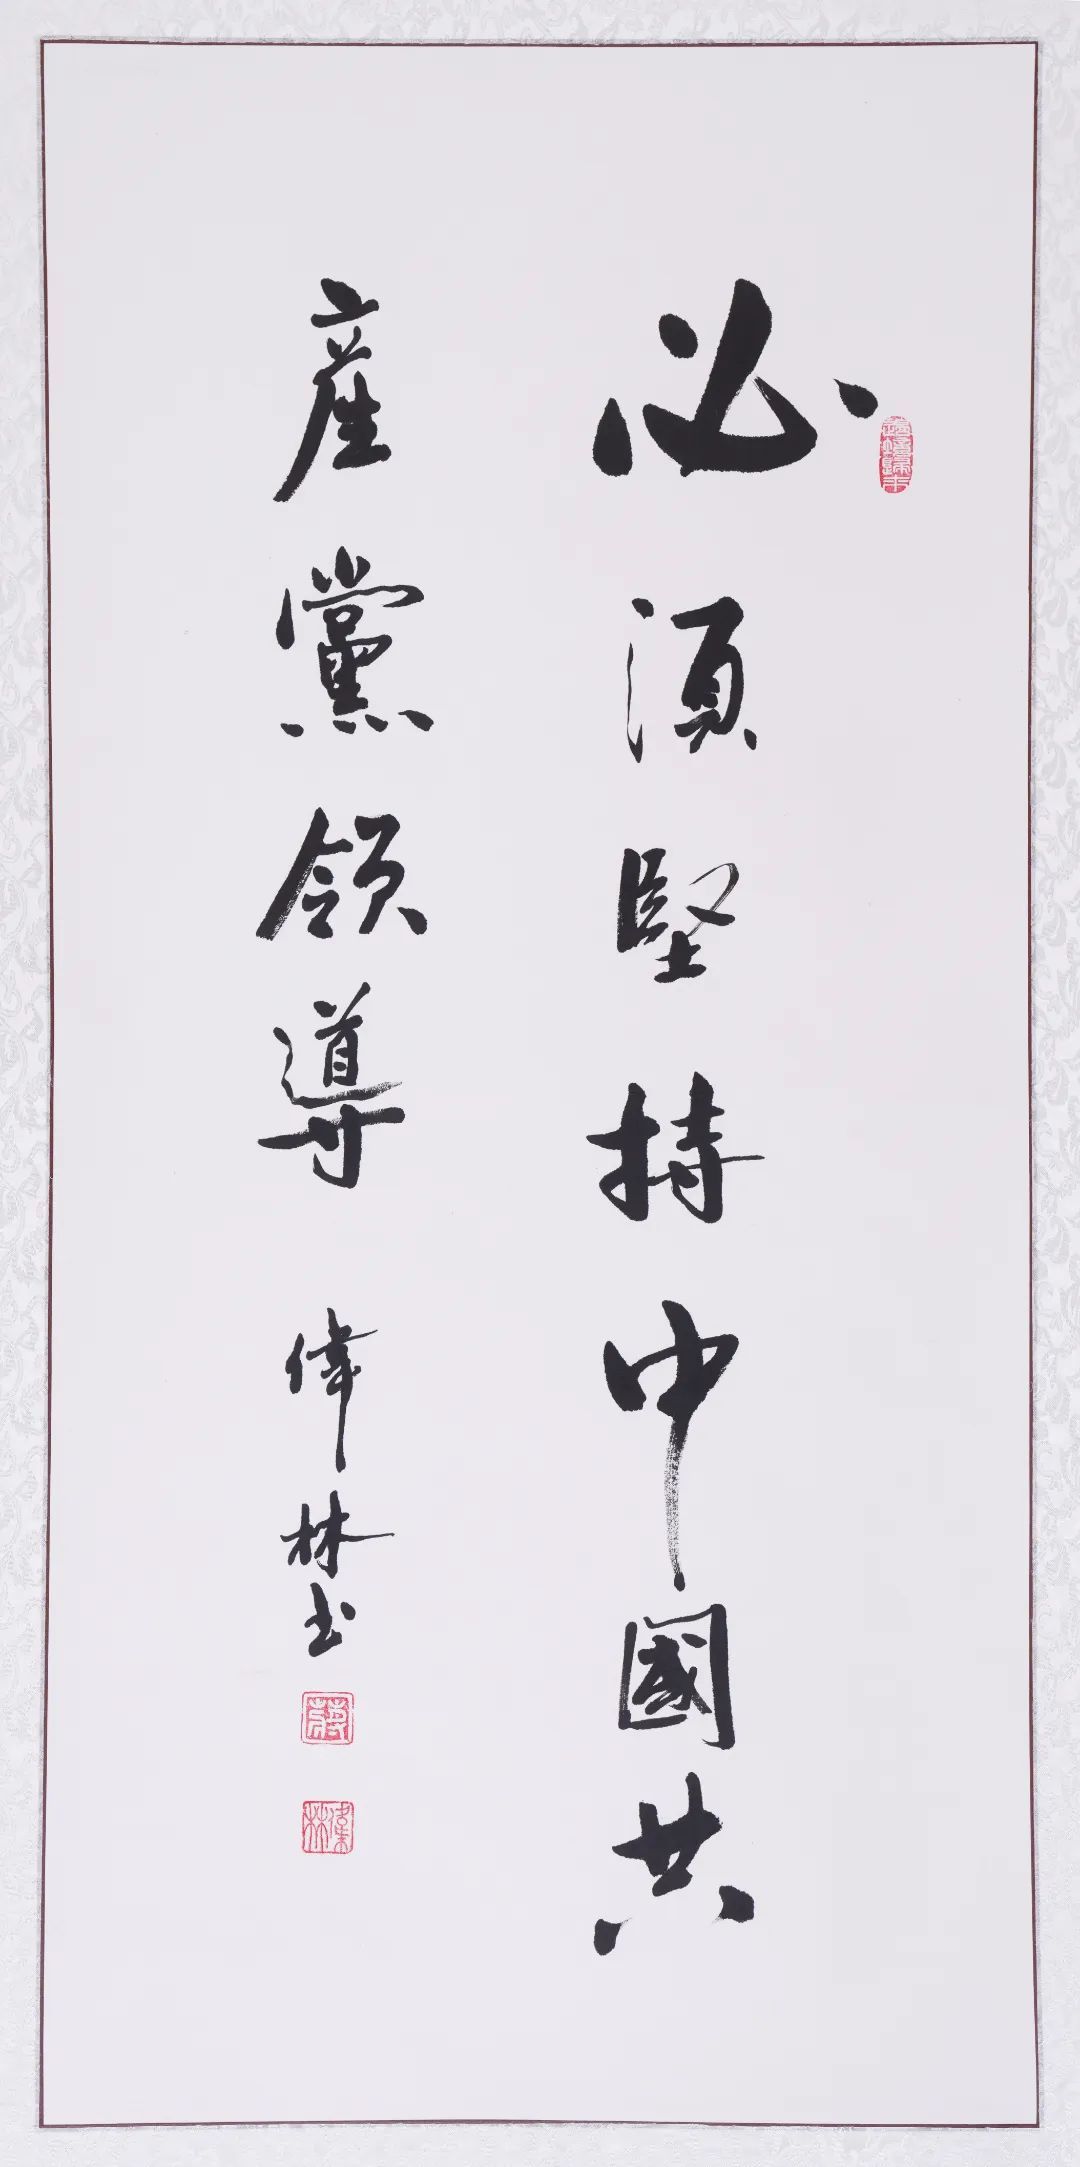 必須堅持中國共
產黨領導
偉林書
偉林